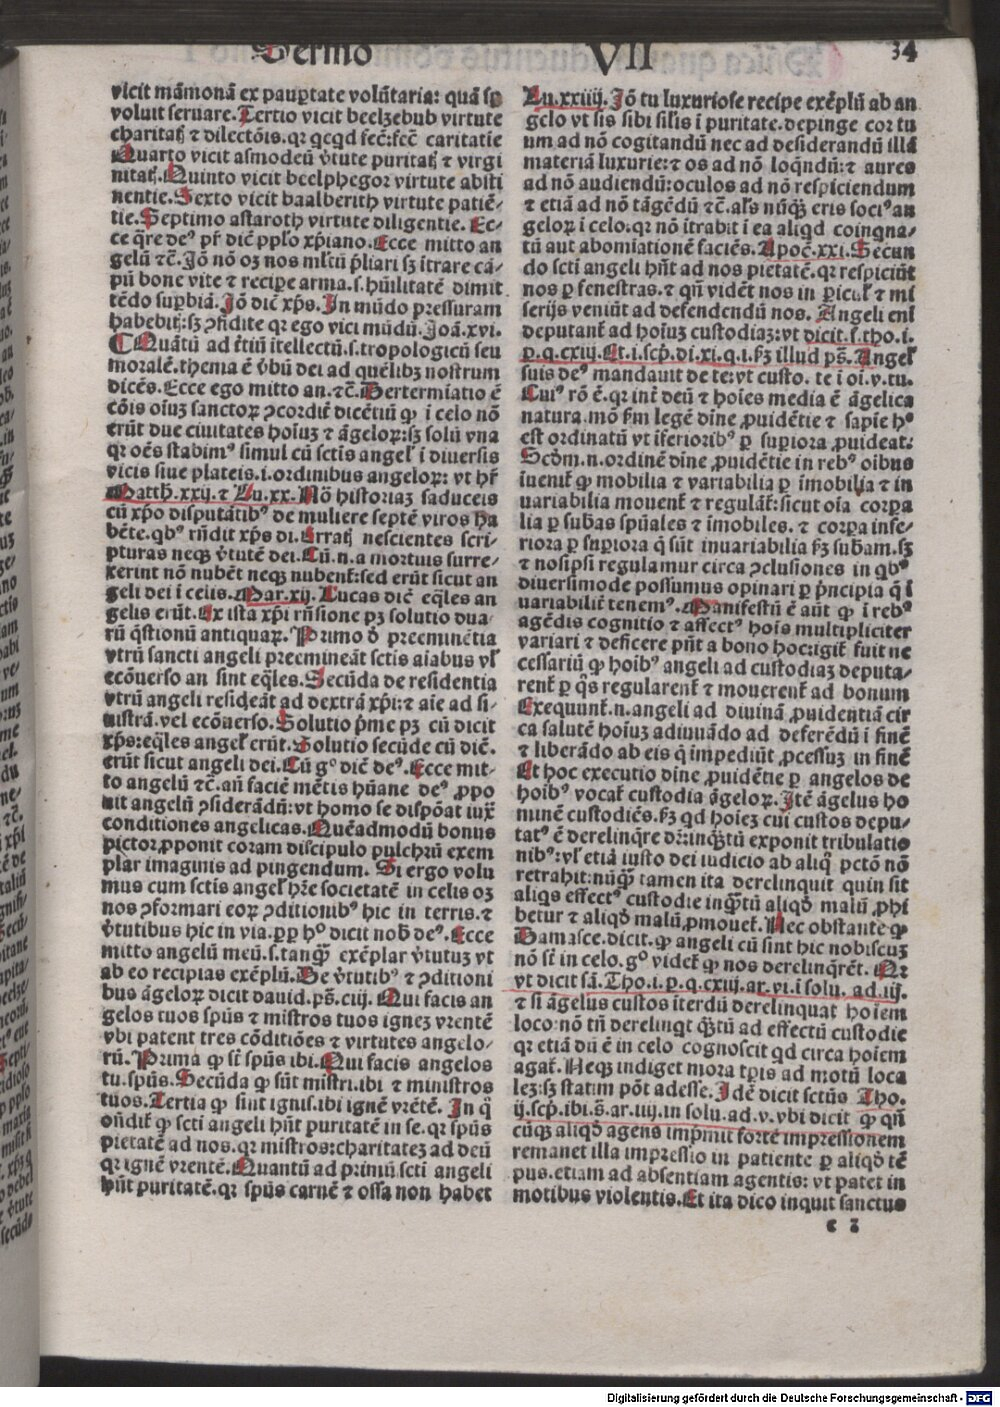 Sermo VII 34
vicit māmonā ex paupertate volūtaria: quā sp
voluit seruare. Tertio vicit beelzebub virtute
charitatꝫ ⁊ dilectōis. qr qcqd fec̄: fec̄ caritatie
Quarto vicit asmodeū v̄tute puritatꝫ ⁊ virgi
nitatꝫ. Quinto vicit beelphegor virtute absti
nentie. Sexto vicit baalberith virtute patiē-
tie. Septimo astaroth virtute diligentie. Ec-
ce q̄re deꝰ pr̄ dic̄ pplo xp̄iano. Ecce mitto an
gelū ⁊c̄. Jō nō oꝫ nos mltū p̄liari sꝫ ītrare cā-
pū bone vite ⁊ recipe arma. s. hūilitatē dimit
tēdo supbiā. Jō dic̄ xp̄s. In mūdo pressuram
habebitꝫ: sꝫ ꝯfidite qr ego vici mūdū. Joā. xvi.
Quātū ad t̄tiū itellectū. s. tropologicū seu
moralē. thema ē v̄bū dei ad quēlibꝫ nostrum
dicēs. Ecce ego mitto an. ⁊c̄. Determiatio ē
cōis oiuꝫ sanctoꝝ ꝯcordit̄ dicētiū ꝙ i celo nō
erūt due ciuitates hoiuꝫ ⁊ āgeloꝝ: sꝫ solū vna
qr oēs stabimꝰ simul cū sctis angel̄ i diuersis
vicis siue plateis. i. ordinibus angeloꝝ: vt hr̄
Matth. xxij. ⁊ Lu. xx. Nō historiaꝫ saduceis
cū xp̄o disputātibꝰ de muliere septē viros ha
bēte. qbꝰ rn̄dit xp̄s di. Erratꝫ nescientes scri-
pturas neqꝫ v̄tutē dei. Cū. n. a mortuis surre-
xerint nō nubēt neqꝫ nubenť: sed erūt sicut an
geli dei i celis. Mar. xij. Lucas dic̄ eq̄les an
gelis erūt. Ex ista xp̄i rn̄sione pꝫ solutio dua-
rū q̄stionū antiquaꝝ. Primo d̄ preeminētia
vtrū sancti angeli preemineāt sctis aiabus vl̄
ecōuerso an sint eq̄les. Secūda de residentia
vtrū angeli resideāt ad dextrā xp̄i: ⁊ aie ad si-
nistrā. vel ecōuerso. Solutio p̄me pꝫ cū dicit
xp̄s: eq̄les angel̄ erūt. Solutio secūde cū dic̄.
erūt sicut angeli dei. Cū gº dic̄ deꝰ. Ecce mit-
to angelū ⁊c̄. an̄ faciē mētis hūane deꝰ ꝓpo
nit angelū ꝯsiderādū: vt homo se dispōat iux̄
conditiones angelicas. Quēadmodū bonus
pictor ꝓponit coram discipulo pulchrū exem
plar imaginis ad pingendum. Si ergo volu
mus cum sctis angel̄ hr̄e societatē in celis oꝫ
nos ꝯformari eoꝝ ꝯditionibꝰ hic in terris. ⁊
v̄tutibus hic in via. ꝓp hº dicit nob̄ deꝰ. Ecce
mitto angelū meū. s. tanqꝫ̄ exēplar v̄tutuꝫ vt
ab eo recipias exēplū. De v̄tutibꝰ ⁊ ꝯditioni
bus āgeloꝝ dicit dauid. ps̄. ciij. Qui facis an
gelos tuos spūs ⁊ mīstros tuos ignez vrentē
vbi patent tres cōditiōes ⁊ virtutes angelo-
rū. Prima ꝙ st̄ spūs ibi. Qui facis angelos
tu. spūs. Secūda ꝙ sūt mīstri. ibi ⁊ ministros
tuos. Tertia ꝙ sint ignis. ibi ignē vrētē. In q̄
on̄diť ꝙ scti angeli hn̄t puritatē in se. qr spūs
pietatē ad nos. qr mīstros: charitateꝫ ad deū
qr ignē vrentē. Quantū ad primū scti angeli
hn̄t puritatē. qr spūs carnē ⁊ ossa non habet
Lu. xxiiij. Jō tu luxuriose recipe exēplū ab an
gelo vt sis sibi sil̄is i puritate. depinge cor tu
um ad nō cogitandū nec ad desiderandū illā
materiā luxurie: ⁊ os ad nō loqn̄dū: ⁊ aures
ad nō audiendū: oculos ad nō respiciendum
⁊ etiā ad nō tāgēdū ⁊c̄. al̄s nūqꝫ̄ eris sociꝰ an
geloꝝ i celo. qr nō itrabit i ea aliqd coinqna-
tū aut abomiationē faciēs. Apoc̄. xxi. Secun
do scti angeli hn̄t ad nos pietatē. qr respiciūt
nos p fenestras. ⁊ qn̄ vidēt nos in picul̄ ⁊ mi
serijs veniūt ad defendendū nos. Angeli enī
deputanť ad hoiuꝫ custodiaꝫ: vt dicit. s. tho. i.
p. q. cxiij. Et. i. scp̄. di. xi. q. i. fꝫ illud ps̄. Angel̄
suis deꝰ mandauit de te: vt custo. te i oi. v. tu.
Cuiꝰ rō ē. qr int̄ deū ⁊ hoies media ē āgelica
natura. mō fm legē dine ꝓuidētie ⁊ sapie hº
est ordinatū vt iferioribꝰ p supiora ꝓuideať.
Scdm. n. ordinē dine ꝓuidētie in rebꝰ oibus
iuenit̄ ꝙ mobilia ⁊ variabilia p imobilia ⁊ in
uariabilia mouent̄ ⁊ regulāt̄: sicut oīa corpa
lia p subas spūales ⁊ imobiles. ⁊ corpa infe-
riora p supiora q̄ sūt inuariabilia fꝫ subam. sꝫ
⁊ nosipsi regulamur circa ꝯclusiones in qbꝰ
diuersimode possumus opinari p p̄ncipia q̄ i
uariabilit̄ tenemꝰ. Manifestū ē aūt ꝙ i rebꝰ
agēdis cognitio ⁊ affectꝰ hois multipliciter
variari ⁊ deficere pn̄t a bono hoc: igiť fuit ne
cessariū ꝙ hoibꝰ angeli ad custodiaꝫ deputa-
renť p q̄s regularenť ⁊ mouerenť ad bonum
Exequunť. n. angeli ad diuinā ꝓuidentiā cir
ca salutē hoiuꝫ adiuuādo ad deferēdū i finē
⁊ liberādo ab eis q̄ impediūt ꝓcessuꝫ in finē
Et hoc executio dine ꝓuidētie p angelos de
hoibꝰ vocať custodia āgeloꝝ. Jtē āgelus ho
minē custodiēs. fꝫ qd hoieꝫ cui custos depu-
tatꝰ ē derelinq̄re dr̄: inqꝫtū exponit tribulatio
nibꝰ: vl̄ etiā iusto dei iudicio ab aliq̄ pctō nō
retrahit: nūqꝫ̄ tamen ita derelinquit quin sit
aliqs effectꝰ custodie inqꝫtū aliqd̄ malū ꝓhi
betur ⁊ aliqd̄ malū ꝓmoueť. Nec obstante ꝙ
Damasce. dicit. ꝙ angeli cū sint hic nobiscuꝫ
nō st̄ in celo. gº videť ꝙ nos derelinq̄rēt. Qr
vt dicit sā. Tho. i. p. q. cxiij. ar. vi. i solu. ad. iij.
⁊ si āgelus custos iterdū derelinquat hoiem
loco: nō tn̄ derelinqt qꝫtū ad effectū custodie
qr etiā dū ē in celo cognoscit qd circa hoiem
agať. Neqꝫ indiget mora tpis ad motū loca
leꝫ: sꝫ statim pōt adesse. Jdē dicit sctūs Tho.
ij. scp̄. ibi. s̄. ar. iiij. in solu. ad. v. vbi dicit ꝙ qn̄
cūqꝫ aliqd̄ agens imp̄mit fortē impressionem
remanet illa impressio in patiente p aliqd̄ tē
pus. etiam ad absentiam agentis: vt patet in
motibus violentis. Et ita dico inquit sanctus
e 2
Digitalisierung gefördert durch die Deutsche Forschungsgemeinschaft - DFG